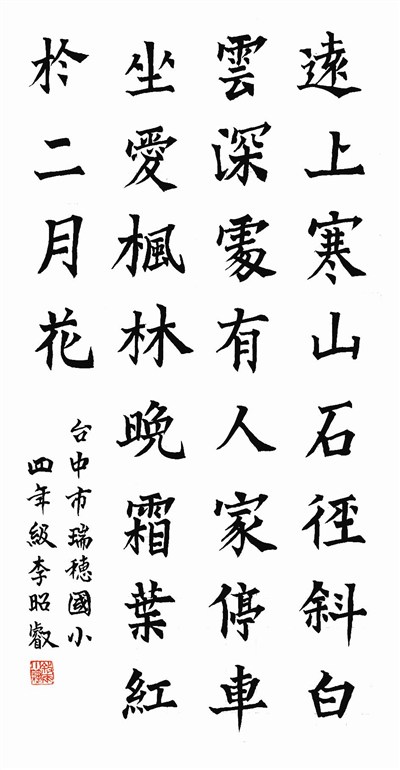 遠上寒山石徑斜白
雲深處有人家停車
坐愛楓林晚霜葉紅
於二月花
台中市瑞穗國小
四年級李昭叡